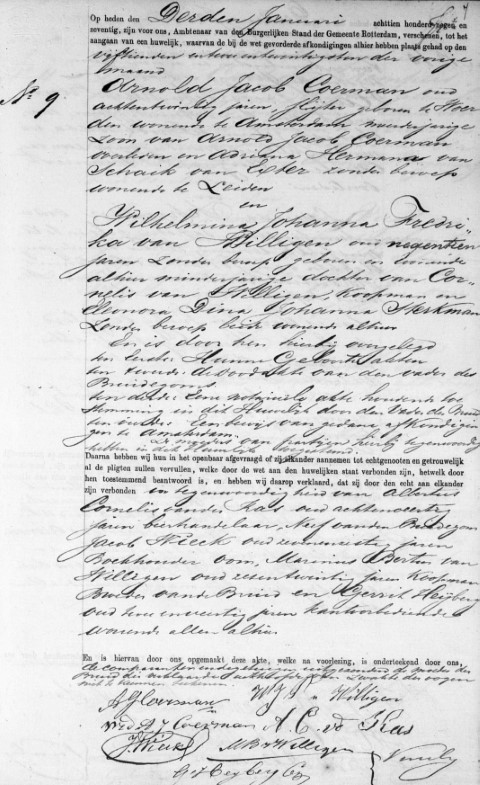 Op heden den Derden Januari achttien honderd negen en
zeventig, zijn voor ons, Ambtenaar van den Burgerlijken Stand der Gemeente Rotterdam, verschenen, tot het
aangaan van een huwelijk, waarvan de bij de wet gevorderde afkondigingen alhier hebben plaats gehad op den
vijftienden en tweeentwintigsten der vorige
maand
No. 9.
Arnold Jacob Coerman oud
achtentwintig jaren, geboren te
wonende te Amsterdam meerderjarige
zoon van Arnold Jacob Coerman
overleden en Adriana Hermana van
Schaick van Exter zonder beroep
wonende te Leiden
en
Wilhelmina Johanna Fredri-
ka van Willigen oud negentien
jaren zonder beroep geboren en wonende
alhier minderjarige dochter van Cor-
nelis van Willigen, Koopman en
Eleonora Dina Johanna Sterkman
zonder beroep beide wonende alhier
En is door hen hierbij overgelegd
ten eerste Hunne Geboorteakten
ten tweede de doodakte van den vader des
Bruidegoms
ten derde Eene notariele akte houdende toe-
stemming in dit Huwelijk door den Vader der Bruid
een bewijs van gedane afkondigin
gen te Amsterdam.
van partijen hierbij tegenwoordig
hebben in dit Huwelijk toegestemd.
Daarna hebben wij hun in het openbaar afgevraagd of zij elkander aannemen tot echtgenooten en getrouwelijk
al de pligten zullen vervullen, welke door de wet aan den huwelijken staat verbonden zijn, hetwelk door
hen toestemmend beantwoord is, en hebben wij daarop verklaard, dat zij door den echt aan elkander
zijn verbonden in tegenwoordigheid van Albertus
Cornelis van der Kas oud achtenveertig
jaren bierhandelaar, Neef van den Bruidegom
Jacob Wieck oud jaren
Boekhouder oom, Marinus Bertus van
Willigen oud zesentwintig jaren Koopman
Broeder van de Bruid en Gerrit Heijberg
oud jaren kantoorbediende
wonende allen alhier
En is hiervan door ons opgemaakt deze akte, welke na voorlezing, is onderteekend door ons,
de comparanten en de getuigen de moeder der
Bruid die verklaarde zwakte der oogen
niet te kunnen teekenen.
AJCoerman WJF v Willigen
wed. A J Coerman A.C. vd Kas
J Wieck MB v Willigen
G Heyberg